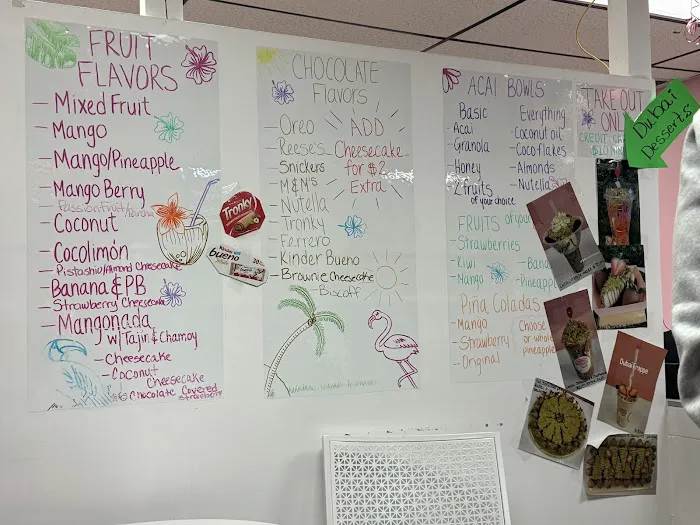 FRUIT
FLAVORS
- Mixed Fruit
- Mango
- Mango/Pineapple
- Mango Berry
- Passionfruit/banana
- Coconut
- Cocolimón
- Pistashio/Almond Cheesecake
- Banana & PB
- Strawberry Cheesecake
- Mangonada
w/ Tajin & Chamoy
- Cheesecake
- Coconut
Cheesecake
Chocolate Covered
strawberry
Tronky
Kinder
bueno
CHOCOLATE
Flavors
- Oreo
- Reese's
- Snickers
- M&M's
- Nutella
- Tronky
- Ferrero
- Kinder Bueno
- Brownie Cheesecake
- Biscoff
ADD
Cheesecake
for $2
Extra
ACAI BOWLS
Basic
- Acai
- Granola
- Honey
- 2 fruits
of your choice
Everything
- Coconut oil
- Coco flakes
- Almonds
- Nutella
FRUITS of your
- Strawberries
- Kiwi
- Mango
- Bana
- Pineapple
Piña Coladas
- Mango
- Strawberry
- Original
Choose
or whole
pineapple
TAKE OUT
ONL
CREDIT C
$10
Dubai
Desserts
Dubai Frappe